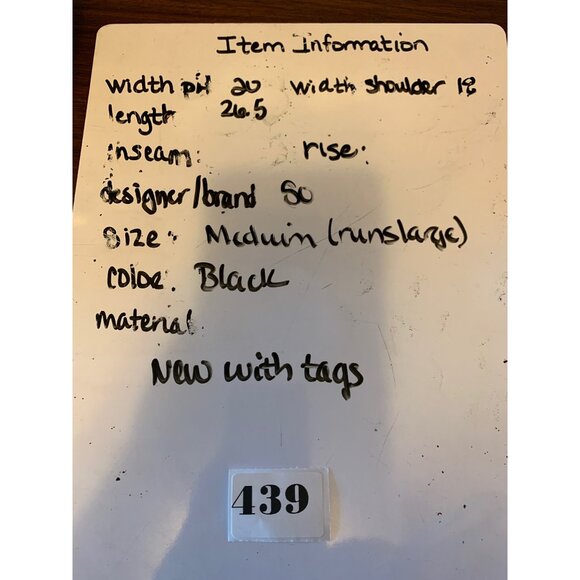 Item Information
width pit 20 width shoulder 18
length 26.5
inseam: rise:
designer/brand So
Size: Meduim (runs large)
color. Black
material
New with tags
439